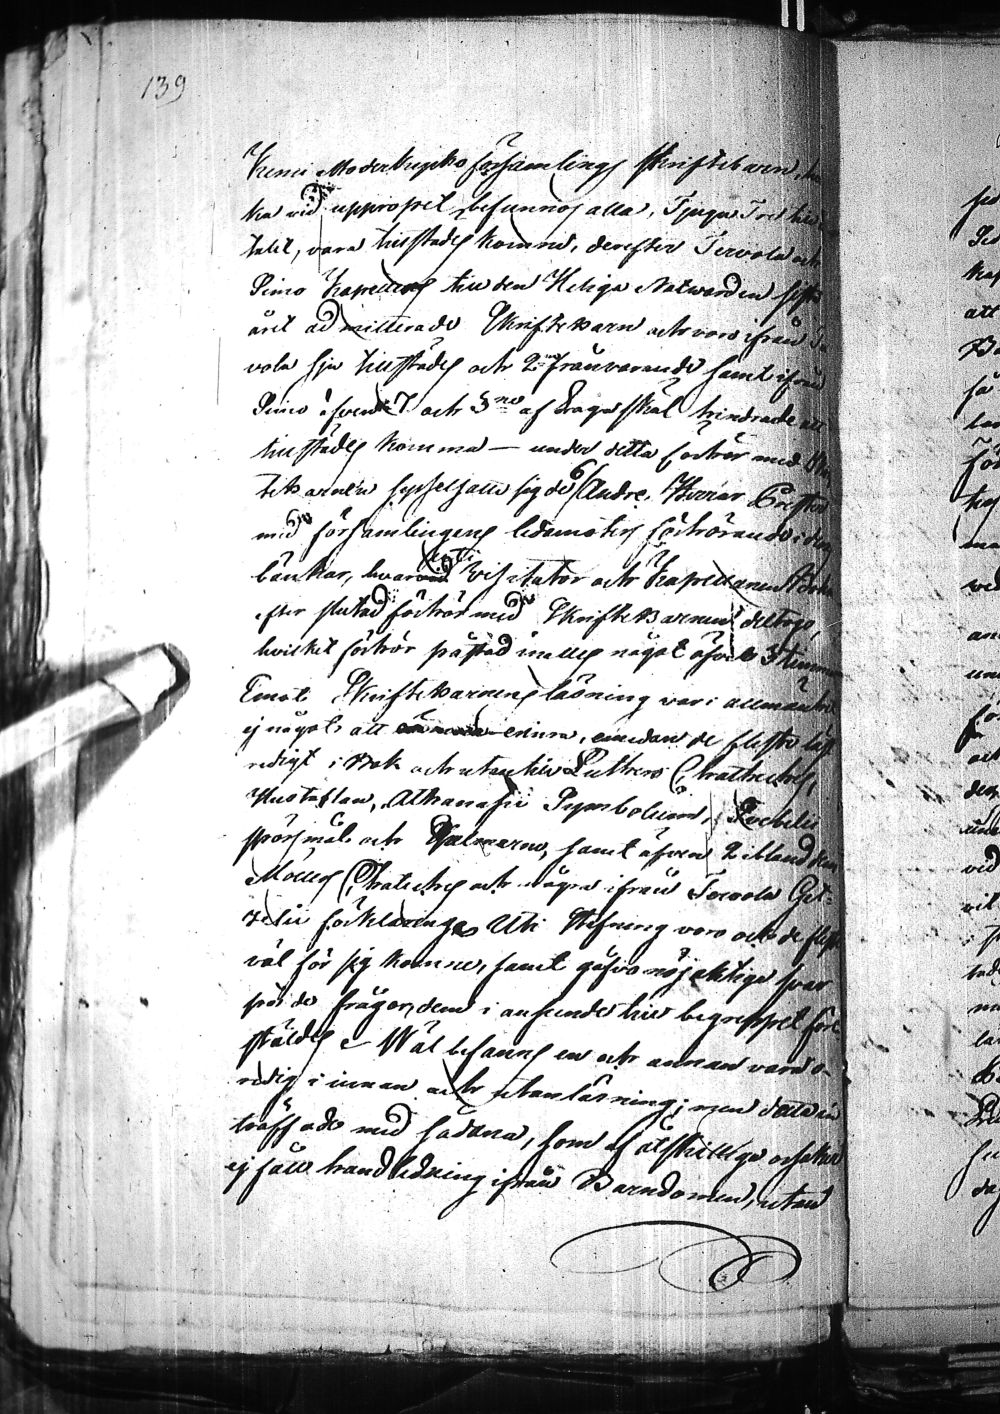 139
Kemi Moderkyrko församlings Skriftebarn,
ka vid uppropet befunnos alla, Tjugu Tre till
talet, vara tillstädes komne, derefter Tervola och
Simo Kapellers till den Heliga Nattvarden sist
året admitterade Skriftebarn och voro ifrån Ter
vola sju tillstädes och 2ne frånvarande samt ifrån
Simo äfven 7 och 3ne af Laga skäl hindrade att
tillstädes komma — under detta förhör med Skrif
tebarnen sysselsatte sig de 6 Andre Herrar Prester
med församlingens ledamöters förhörande i deras
bänkar, hvaruti Visitator och Kapellanen
efter slutad förhör med Skriftebarnen deltogo,
hvilket förhör påstod inalles något öfver 3 timmar
Emot Skriftebarnens läsning var i allmänhet
ej något att erinra, emedan de fleste läste
redigt i Bok och utantill Lutheri Catheches,
Hustaflan, Athanasii Symbolum,
spörsmål och Psalmerne, samt äfven 2 ibland dem
Möllers Cateches och några ifrån Tervola
förklaring. Uti Stafning voro ock de fleste
väl för sig komne, samt gåfvo nöjaktige svar
på de frågor, dem i anseende till begreppet före
ställdes. Wäl befanns en och annan vara o-
redig i innan och utanläsning; men detta in
träffade med sådana, som af åtskillige orsaker
ej fått handledning ifrån Barndomen, utan